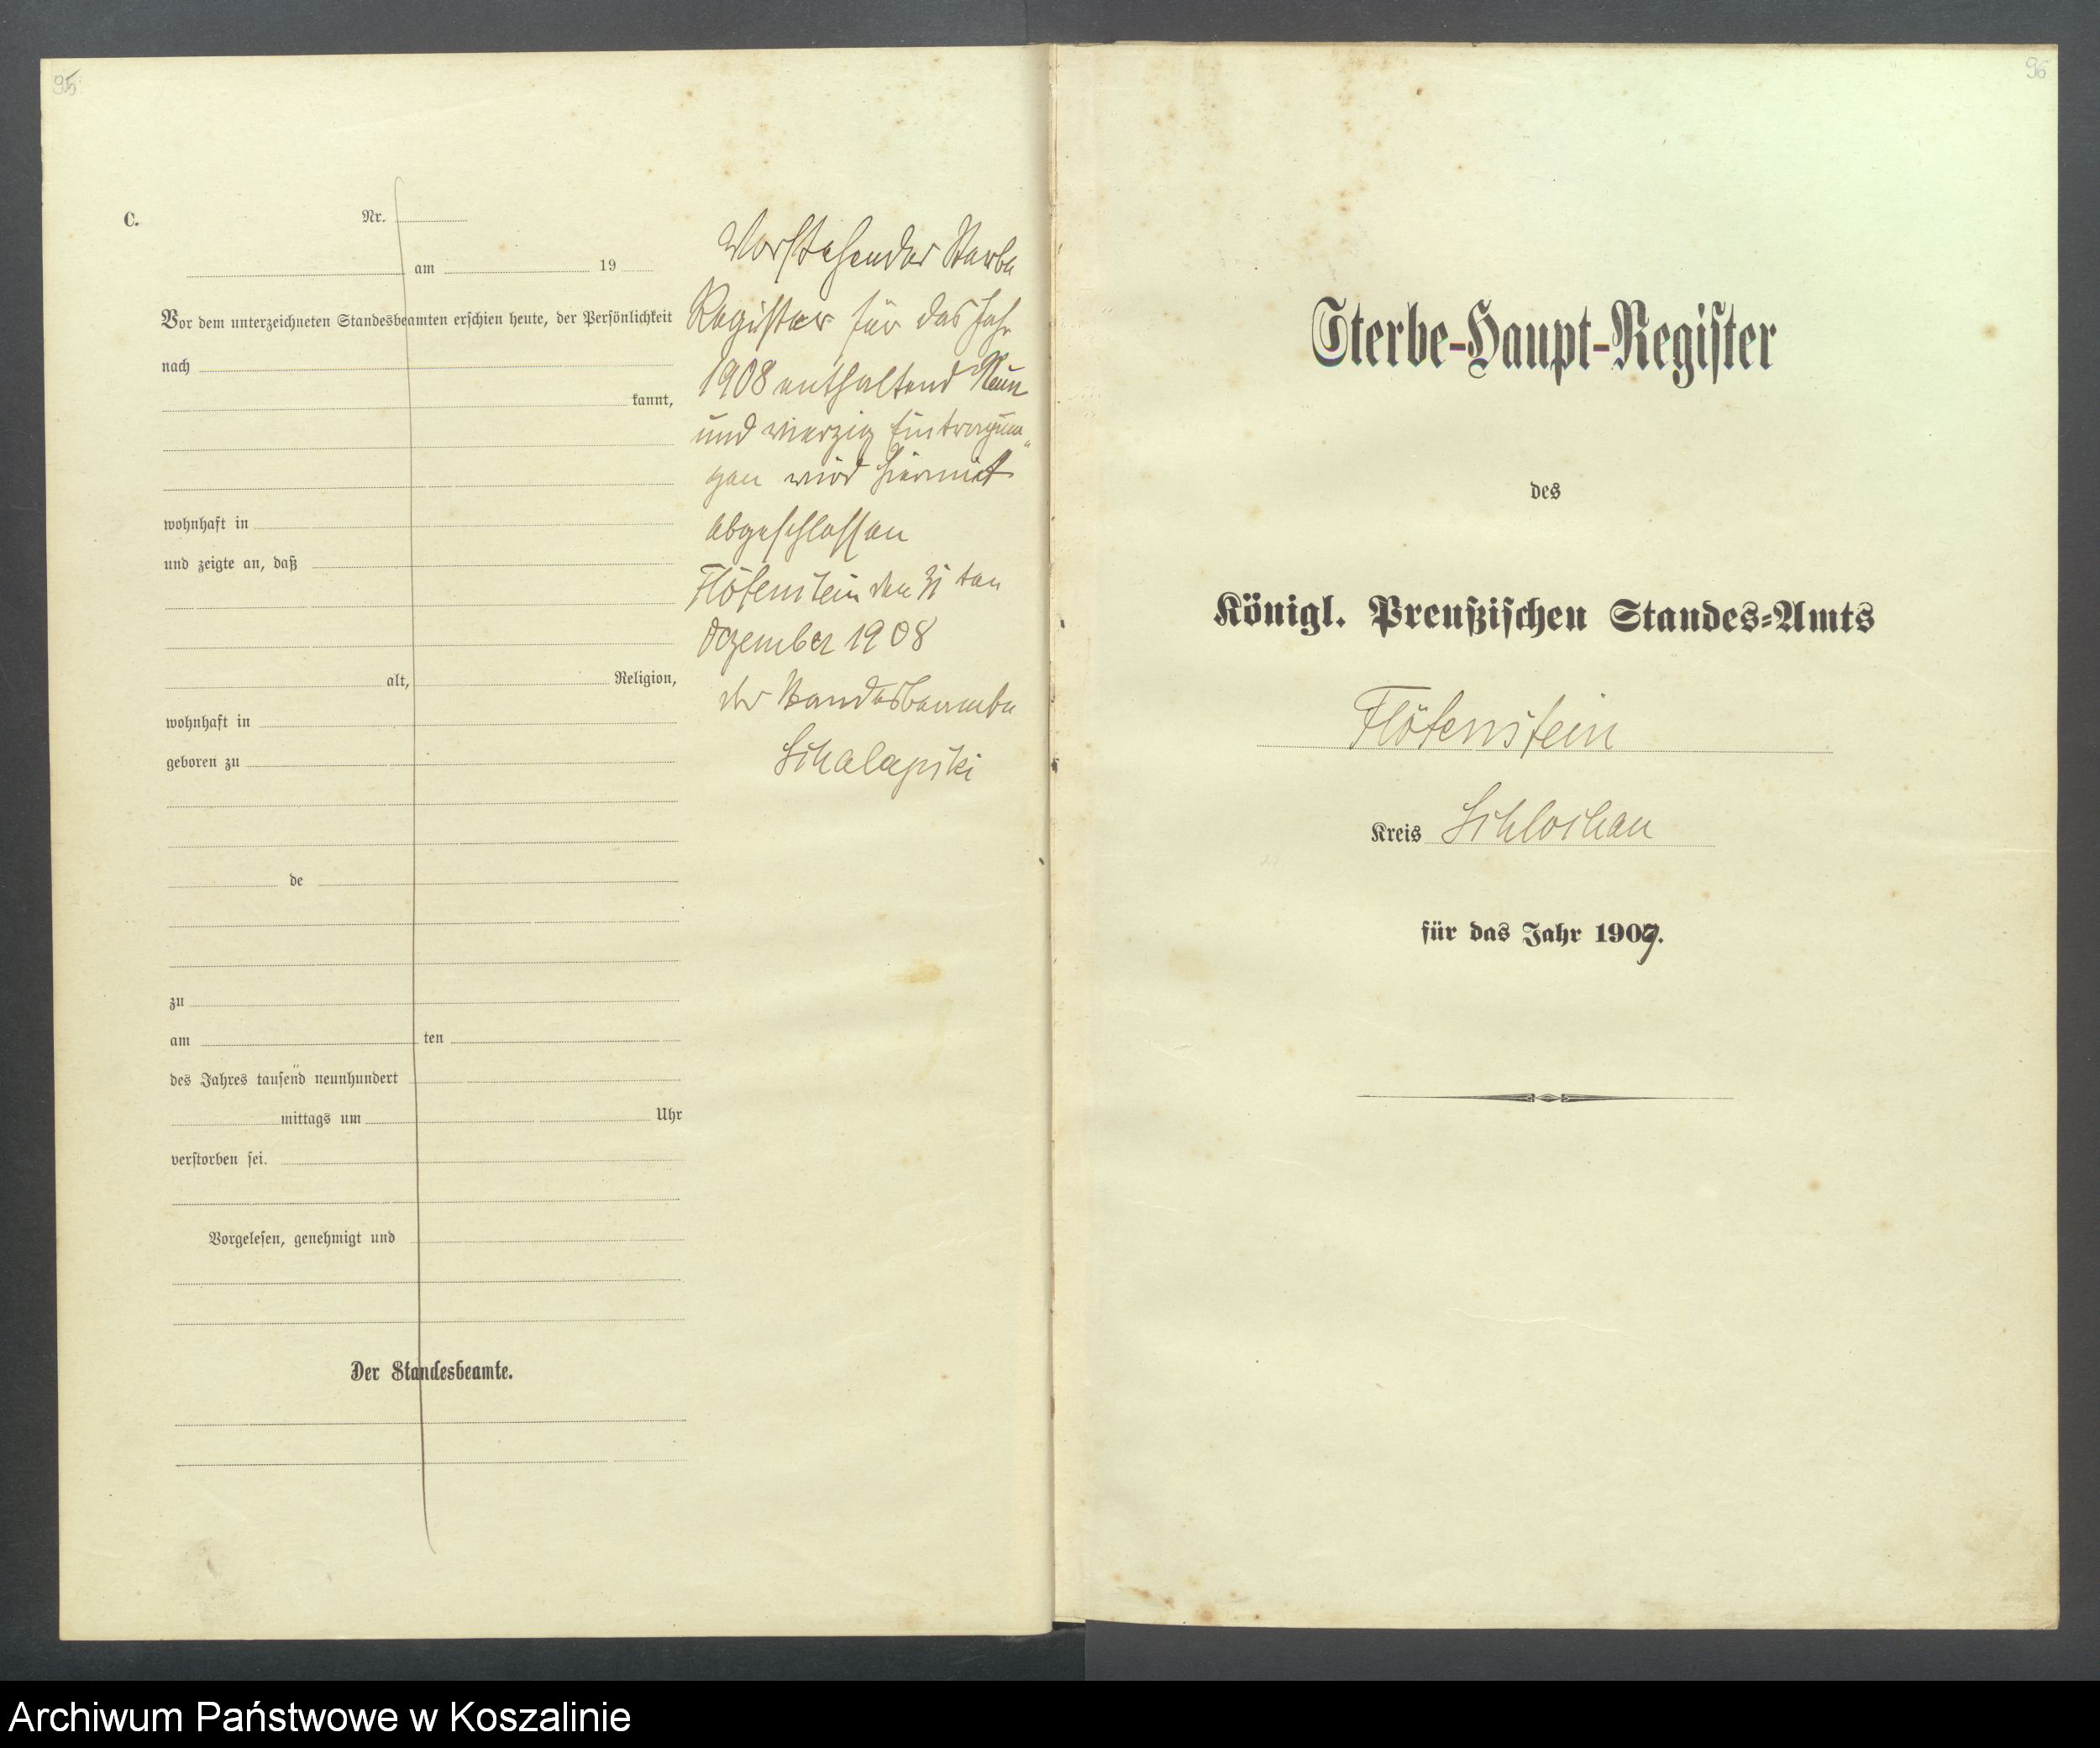 95
C.
Nr.
am 19
Vor dem unterzeichneten Standesbeamten erschien heute, der Persönlichkeit
nach
kannt,
wohnhaft in
und zeigte an, daß
alt, Religion,
wohnhaft in
geboren zu
de
zu
am ten
des Jahres tausend neunhundert
mittags um Uhr
verstorben sei.
Vorgelesen, genehmigt und
Der Standesbeamte.
Vorstehender Sterbe
Register für das Jahr
1908 enthaltend Neun
und vierzig Eintragun„
gen wird hiermit
abgeschlossen
Flötenstein den 31 ten
Dezember 1908
der Standesbeamte
96
Sterbe-Haupt-Register
des
Königl. Preußischen Standes-Amts
Flötenstein
Kreis Schlochau
für das Jahr 1909.
Archiwum Państwowe w Koszalinie